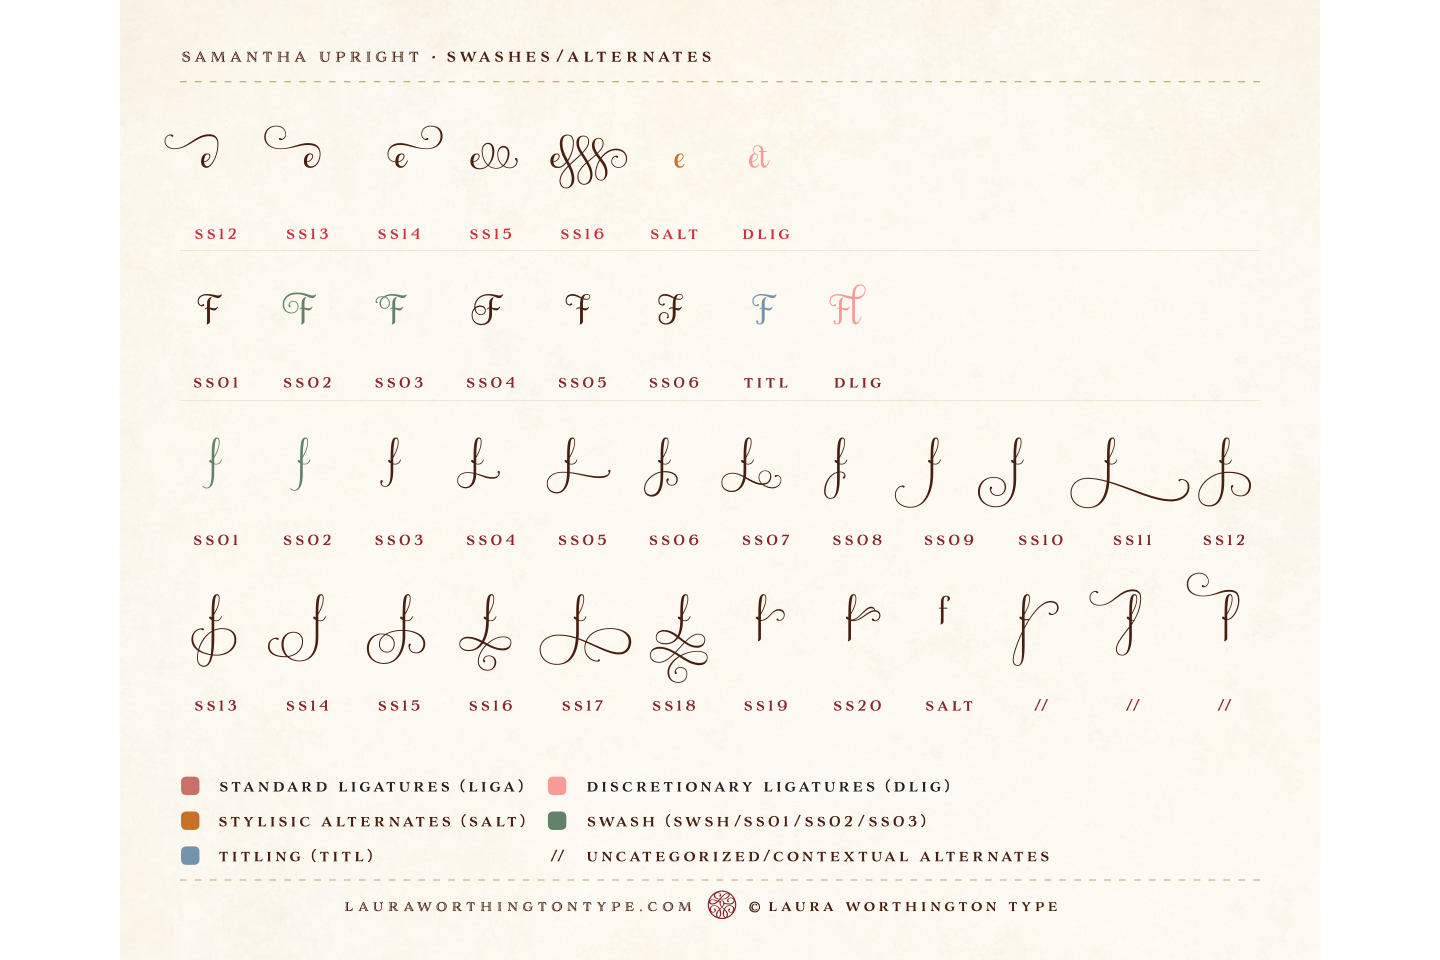 SAMANTHA UPRIGHT · SWASHES/ALTERNATES
e e e e e e et
SS12 SS13 SS14 SS15 SS16 SALT DLIG
F F F F F F F Fl
SS01 SS02 SS03 SS04 SS05 SS06 TITL DLIG
f f f f f f f f f f f f
SS01 SS02 SS03 SS04 SS05 SS06 SS07 SS08 SS09 SS10 SS11 SS12
f f f f f f f f f f f f
SS13 SS14 SS15 SS16 SS17 SS18 SS19 SS20 SALT // // //
STANDARD LIGATURES (LIGA) DISCRETIONARY LIGATURES (DLIG)
STYLISIC ALTERNATES (SALT) SWASH (SWSH/SS01/SS02/SS03)
TITLING (TITL) // UNCATEGORIZED/CONTEXTUAL ALTERNATES
LAURAWORTHINGTONTYPE.COM © LAURA WORTHINGTON TYPE